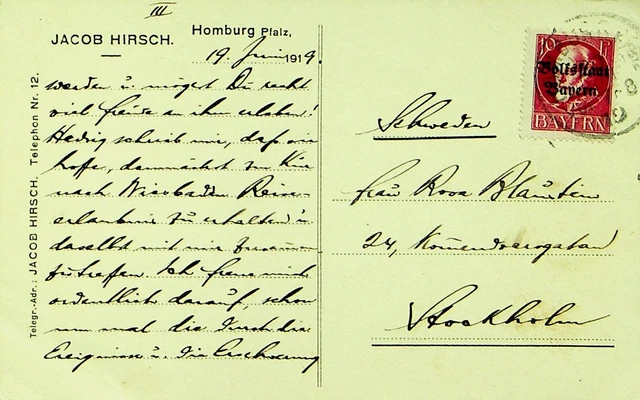 III
JACOB HIRSCH.
Homburg Pfalz,
19. Juni 1919.
Telegr.-Adr.: JACOB HIRSCH. Telephon Nr. 12.
werden u. mögest Du recht
viel Freude an ihm erleben!
Hedwig schrieb mir, daß
hoffe, demnächst zur Kur
nach Wiesbaden Reise-
erlaubnis zu erhalten u.
daselbst mit mir zusammen
zutreffen. Ich freue mich
ordentlich darauf, schon
um mal die durch die
Ereignisse u. die
10
Volksstaat
Bayern
BAYERN
Schweden
Frau Rosa
24, Kommendörsgatan
Stockholm